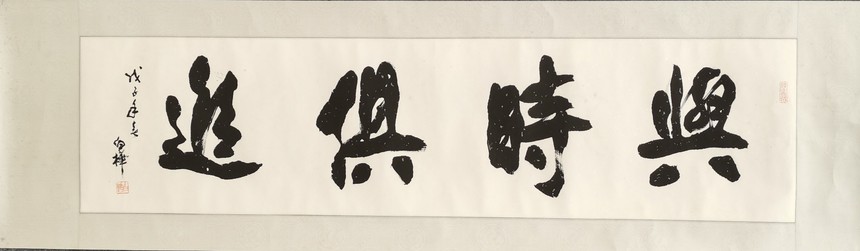 與時俱進
戊子年春
白樺